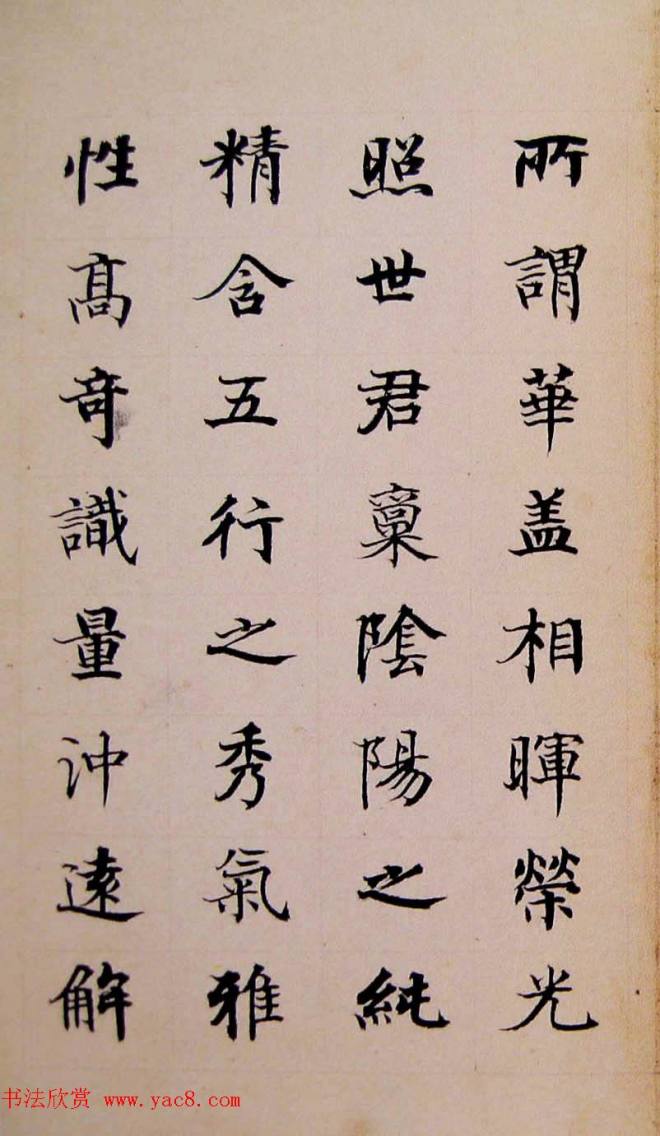 所謂華盖相暉榮光
照世君稟陰陽之純
精含五行之秀氣雅
性髙奇識量沖遠解
书法欣赏 www.yac8.com